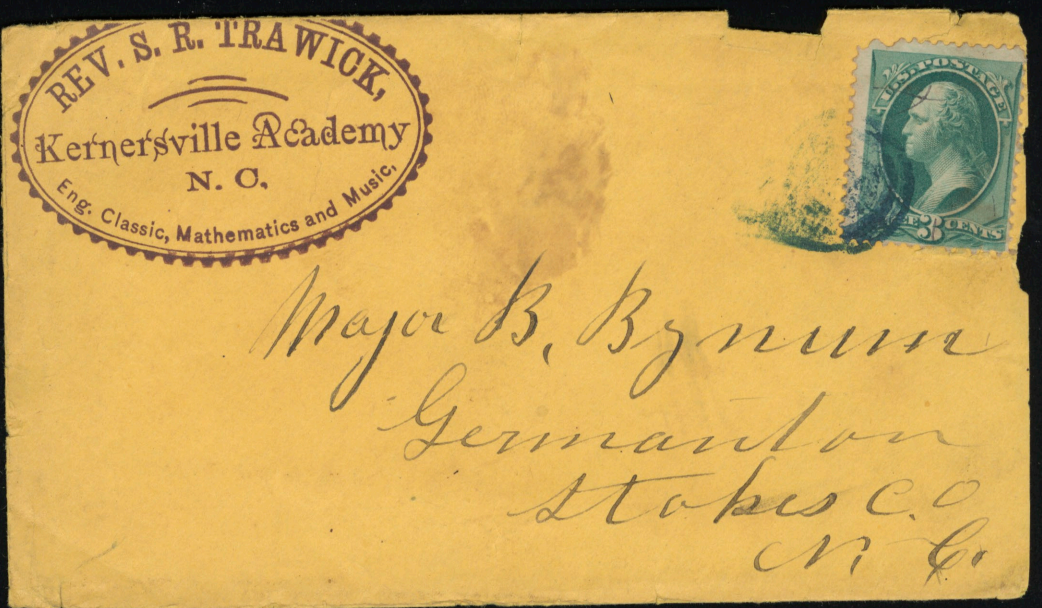 REV. S. R. TRAWICK,
Kernersville Academy
N. C.
Eng. Classic, Mathematics and Music,
U.S. POSTAGE
3 CENTS
Major B. Bynum
Germanton
Stokes C.O
N. C.